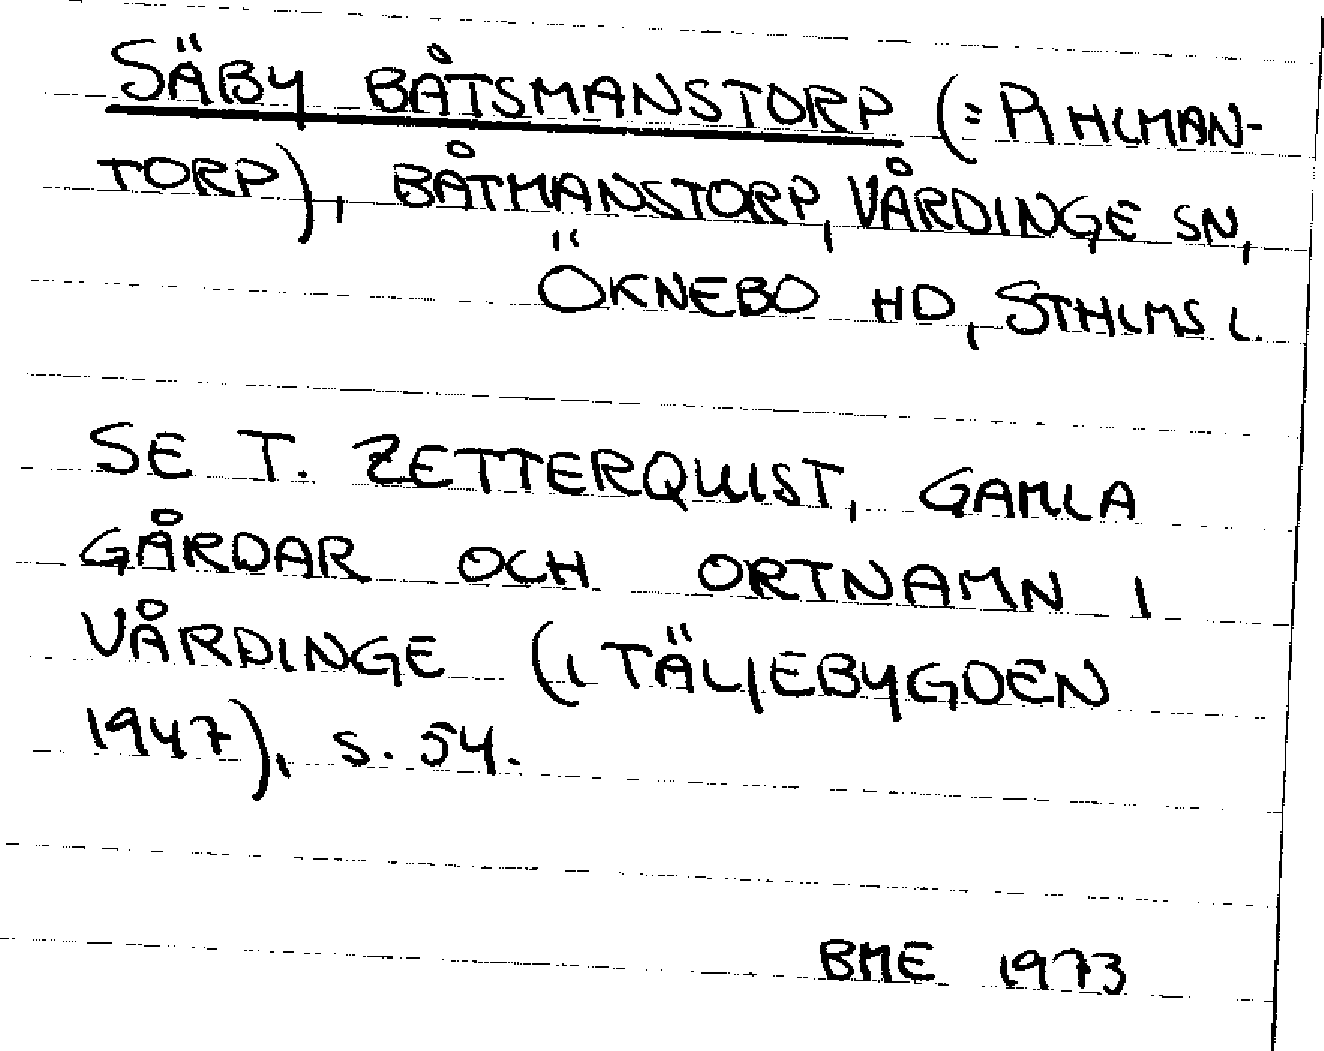 SÄBY BÅTSMANSTORP (= PIHLMAN-
TORP), BÅTMANSTORP, VÅRDINGE SN,
ÖKNEBO HD, STHLMS L.
SE T. ZETTERQUIST, GAMLA
GÅRDAR OCH ORTNAMN I
VÅRDINGE (I TÄLJEBYGDEN
1947), S. 54.
BME 1973